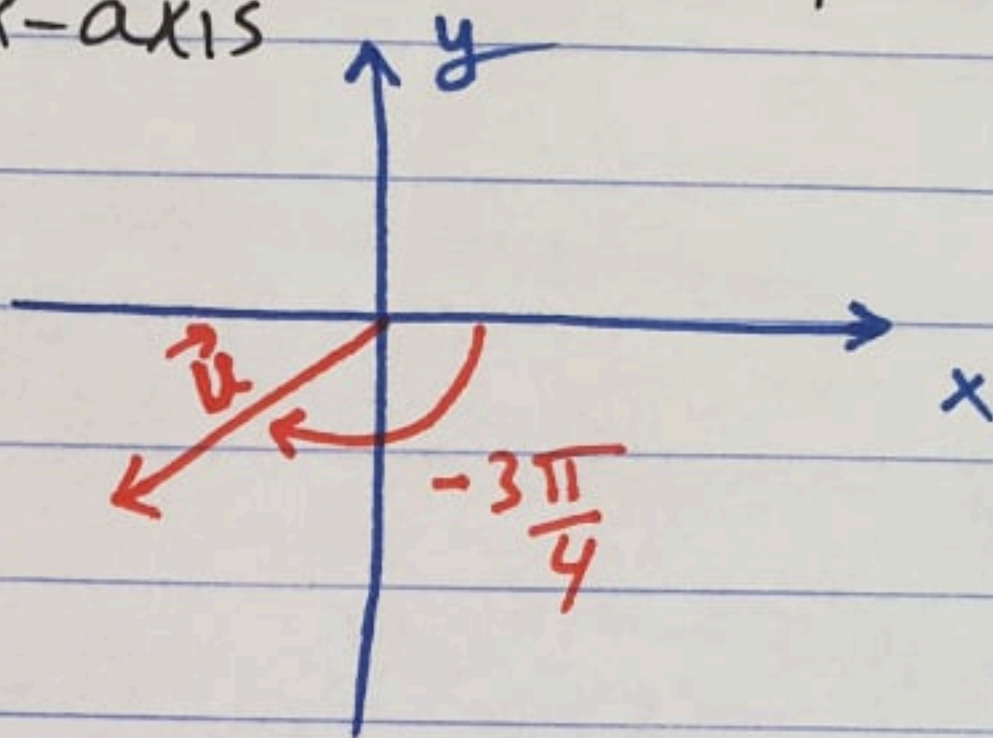 x-axis
y
x
u⃗
-3π/4